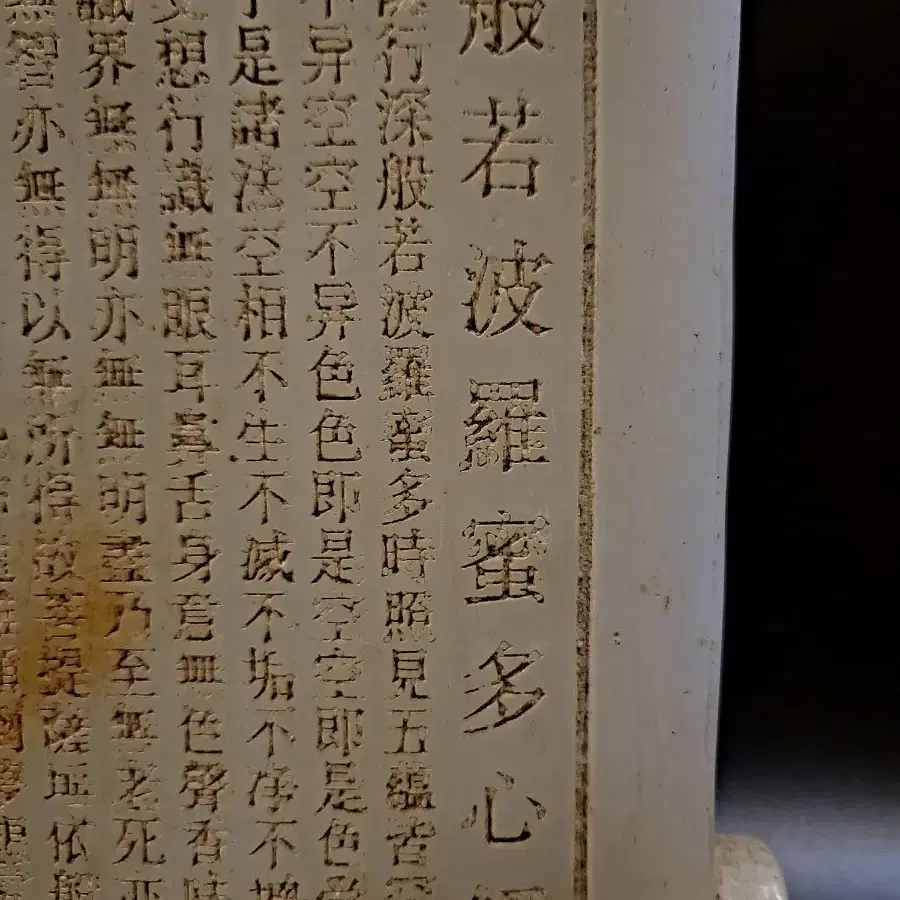 般若波羅蜜多心
行深般若波羅蜜多時照見五蘊皆
异空空不异色色即是空空即是色
是諸法空相不生不滅不垢不净不增
想行識無眼耳鼻舌身意無色聲香味
識界無無明亦無無明盡乃至無老死亦
無智亦無得以無所得故菩提薩埵依般